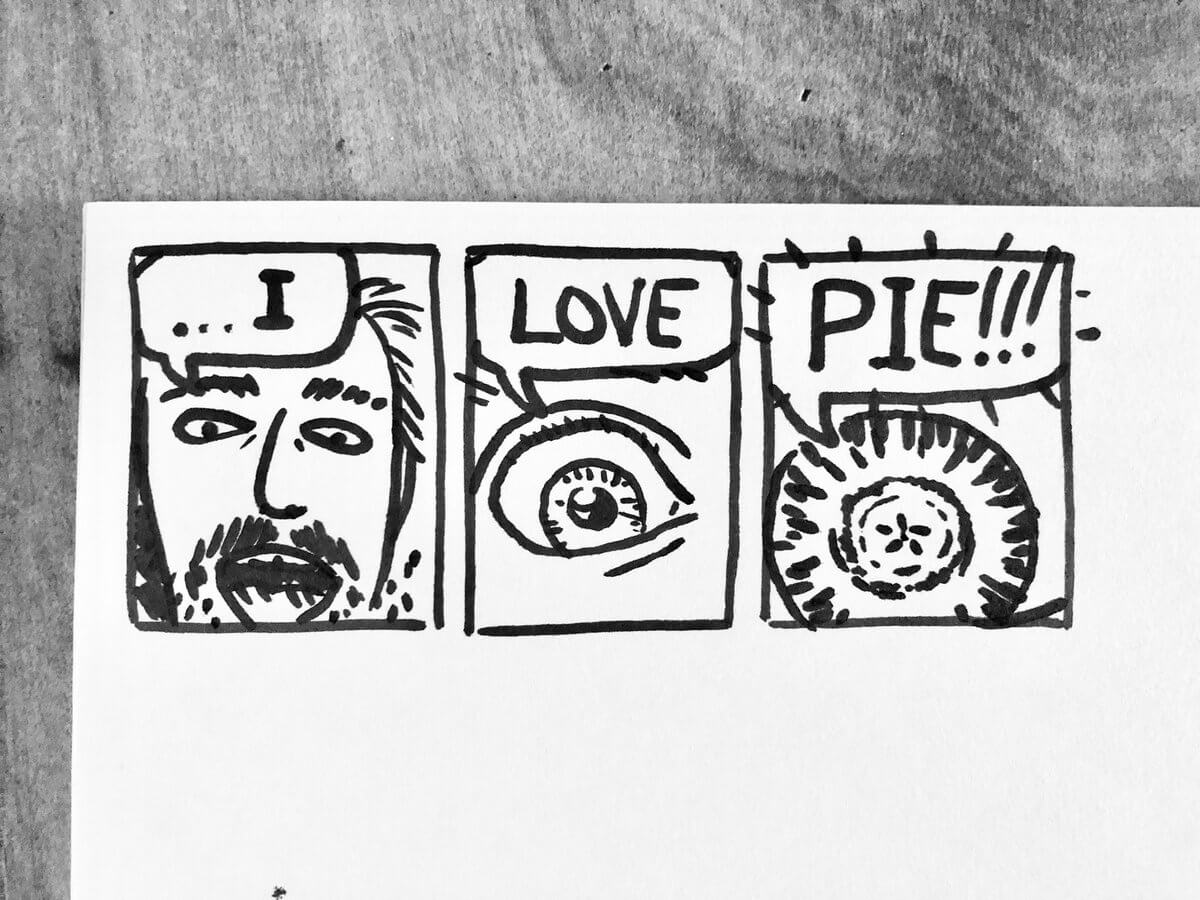 ... I
LOVE
PIE!!!